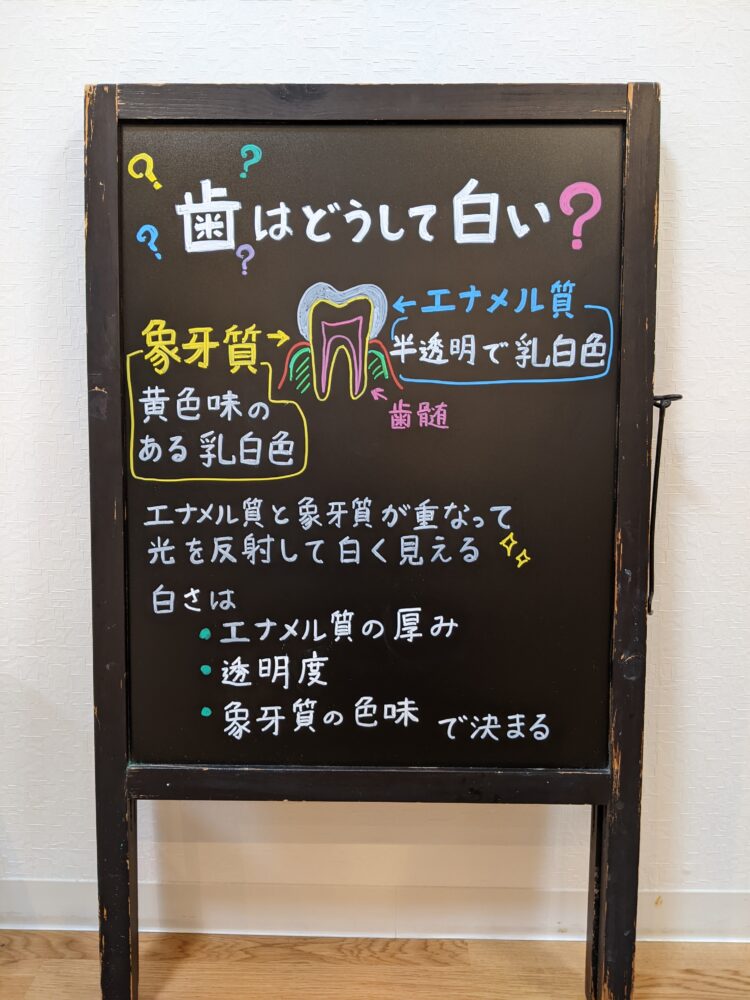 ? ?
歯はどうして白い?
? ?
←エナメル質
半透明で乳白色
象牙質→
黄色味の
ある乳白色
歯髄
エナメル質と象牙質が重なって
光を反射して白く見える
白さは
・エナメル質の厚み
・透明度
・象牙質の色味 で決まる